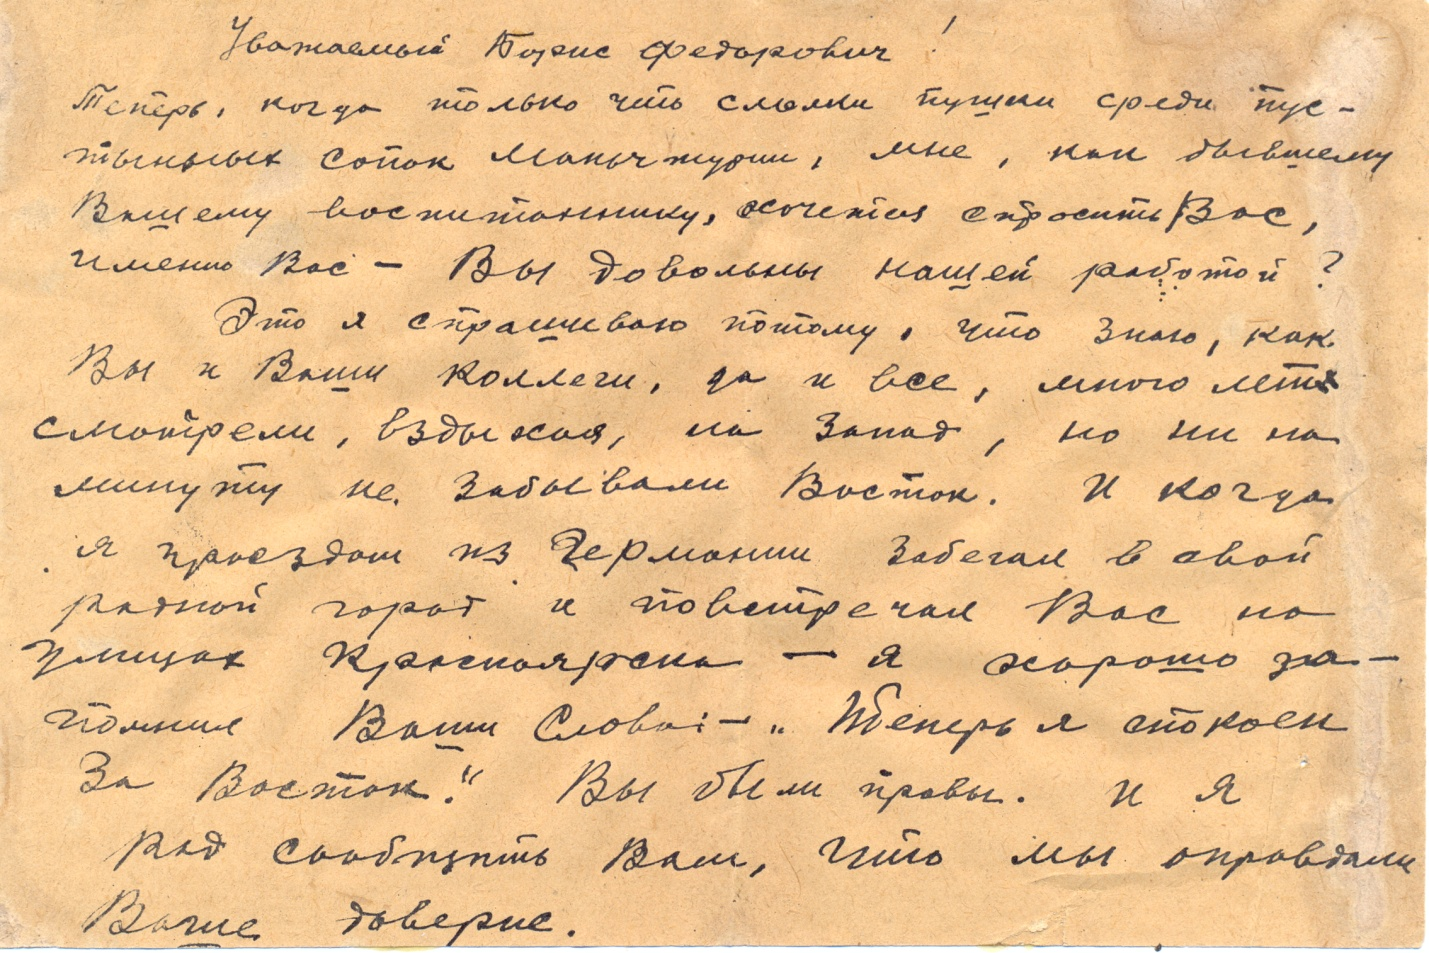 Уважаемый Борис Федорович!
Теперь, когда только что смолкли пушки среди пус-
тынных сопок Маньчжурии, мне, как бывшему
Вашему воспитаннику, хочется спросить Вас,
именно Вас – Вы довольны нашей работой?
Это я спрашиваю потому, что знаю, как
Вы и Ваши коллеги, да и все, много лет
смотрели, вздыхая, на Запад, но ни на
минуту не забывали Восток. И когда
я проездом из Германии забегал в свой
родной город и повстречал Вас на
улицах Красноярска – я хорошо за-
помнил Ваши слова: – „Теперь я спокоен
За Восток." Вы были правы. И я
рад сообщить Вам, что мы оправдали
Ваше доверие.